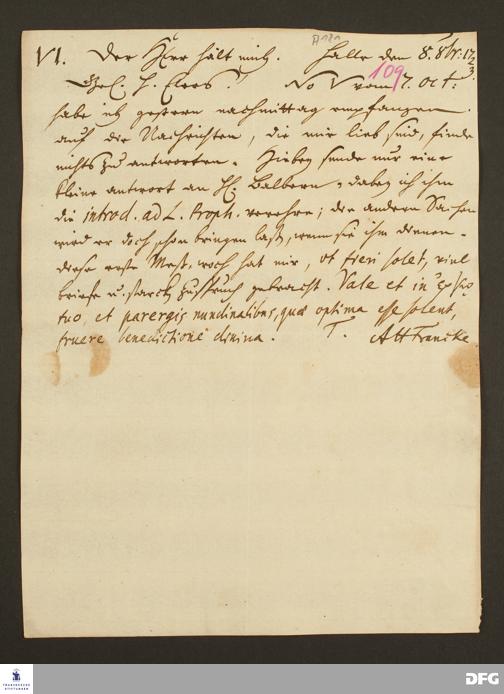 A181
VI. Der Herr hält mich. Halle den 8. 8br: 1723.
109
Gel. H. Elers! No V vom 7. Oct:
habe ich gestern nachmittag empfangen.
auf die Nachrichten, die mir lieb sind, finde
nichts zu antworten. Hiebey sende nur eine
kleine antwort an H. Balbern, dabey ich ihm
die introd. ad L. Proph. verehre; die andern Sachen
wird er doch schon bringen laßen, wenn sie ihm dienen.
diese erste Meß-woch hat mir, ut fieri solet, viel
briefe u. starck zuspruch gebracht. Vale et in
tuo, et parergis nundinalibus, quæ optima esse solent,
fruere benedictione divina. T. AHFrancke.
FRANCKESCHE
STIFTUNGEN
DFG